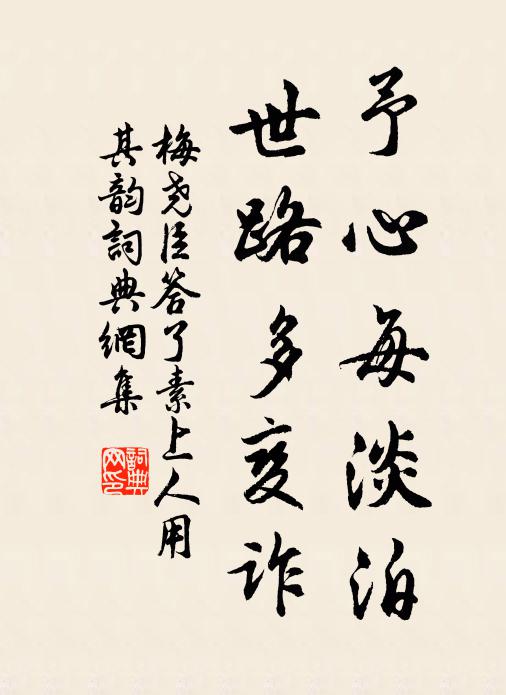 予心每淡泊
世路多变诈
梅尧臣答了素上人用
其韵詞典網集
詞典网印